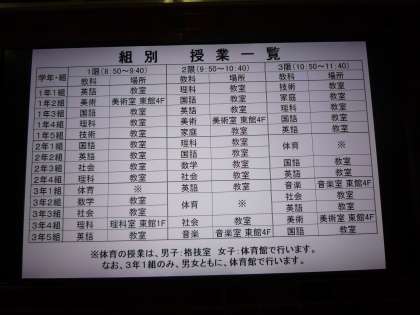 組別 授業一覧
学年・組 1限(8:50～9:40) 2限(9:50～10:40) 3限(10:50～11:40)
教科 場所 教科 場所 教科 場所
1年1組 英語 教室 理科 教室 技術 教室
1年2組 美術 美術室 東館4F 国語 教室 家庭 教室
1年3組 国語 教室 英語 教室 理科 教室
1年4組 理科 教室 美術 美術室 東館4F 国語 教室
1年5組 技術 教室 家庭 教室 英語 教室
2年1組 国語 教室 理科 教室 体育 ※
2年2組 英語 教室 国語 教室
2年3組 社会 教室 数学 教室 国語 教室
2年4組 理科 教室 社会 教室 英語 教室
3年1組 体育 ※ 英語 教室 音楽 音楽室 東館4F
3年2組 数学 教室 体育 ※ 社会 教室
3年3組 社会 教室 英語 教室
3年4組 理科 理科室 東館1F 社会 教室 美術 美術室 東館4F
3年5組 英語 教室 音楽 音楽室 東館4F 国語 教室
※体育の授業は、男子:格技室 女子:体育館で行います。
なお、3年1組のみ、男女ともに、体育館で行います。